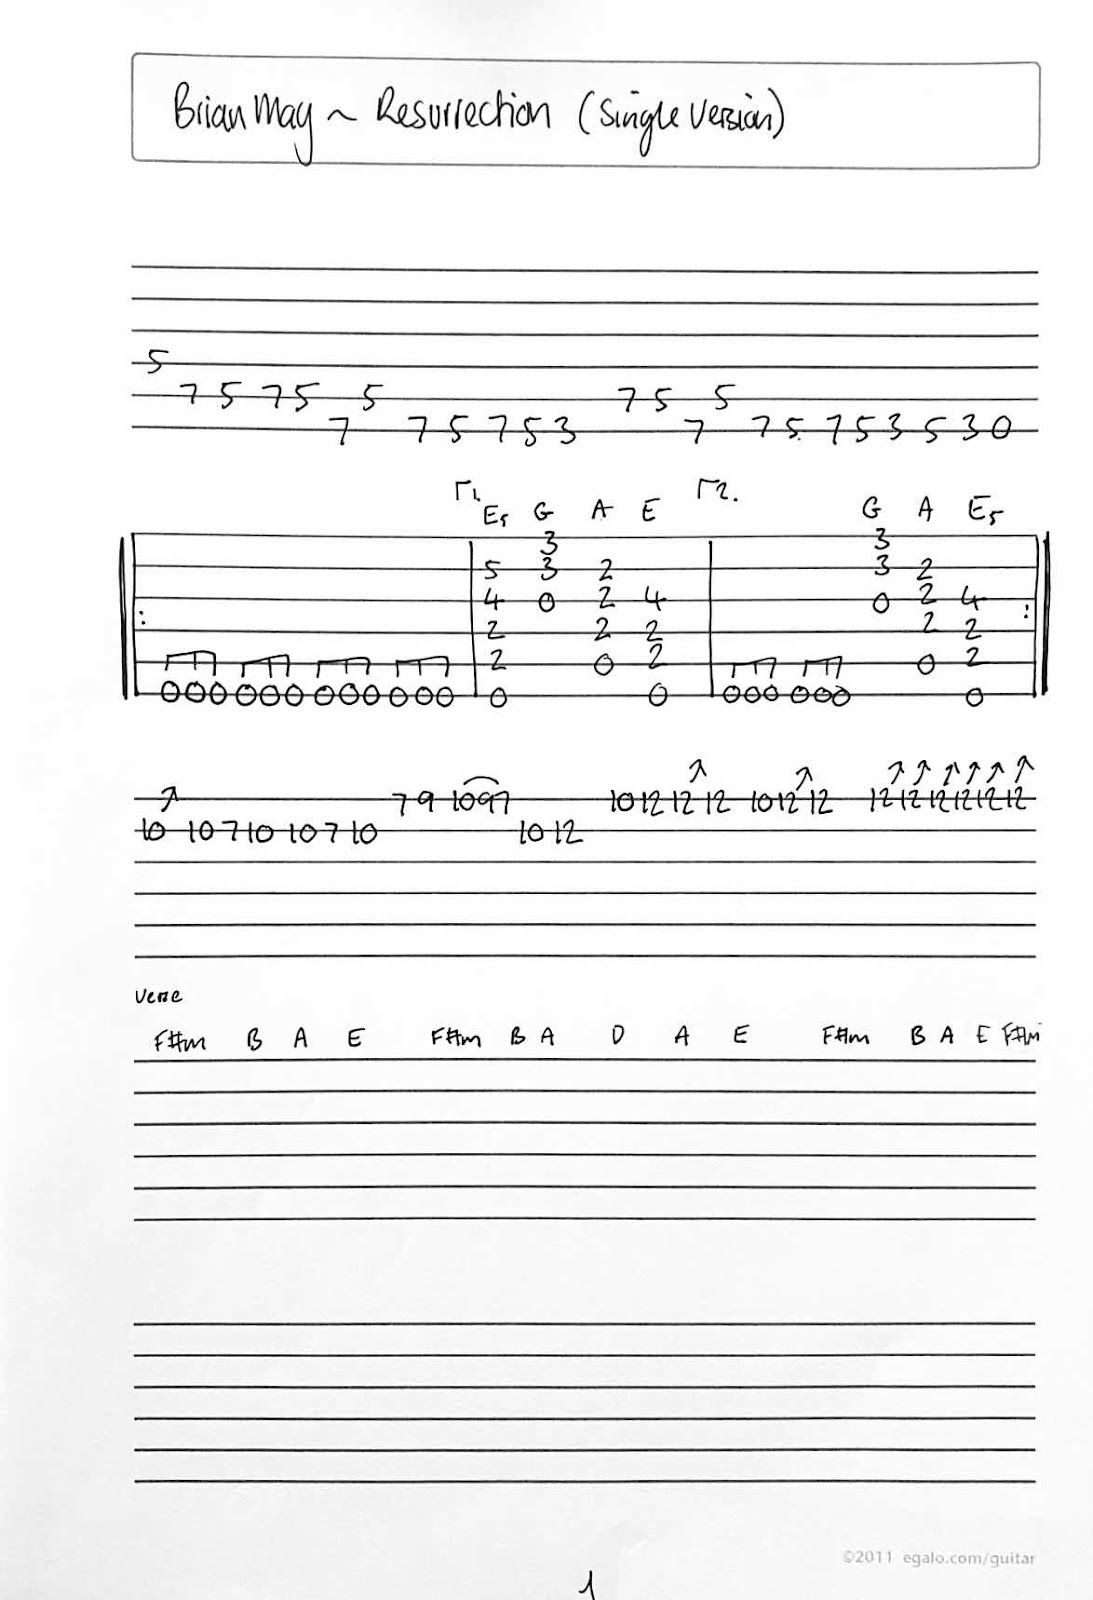 Brian May ~ Resurrection (Single Version)
5
7 5 7 5 5 7 5 5
7 7 5 7 5 3 7 7 5 7 5 3 5 3 0
1. 2.
E5 G A E G A E5
3 3
5 3 2 3 2
4 0 2 4 0 2 4
2 2 2 2 2
2 0 2 0 2
000 000 000 000 0 0 000 000 0
7 9 10 9 7 10 12 12 12 10 12 12 12 12 12 12 12 12
10 10 7 10 10 7 10 10 12
Verse
F#m B A E F#m B A D A E F#m B A E F#m
©2011 egalo.com/guitar
1